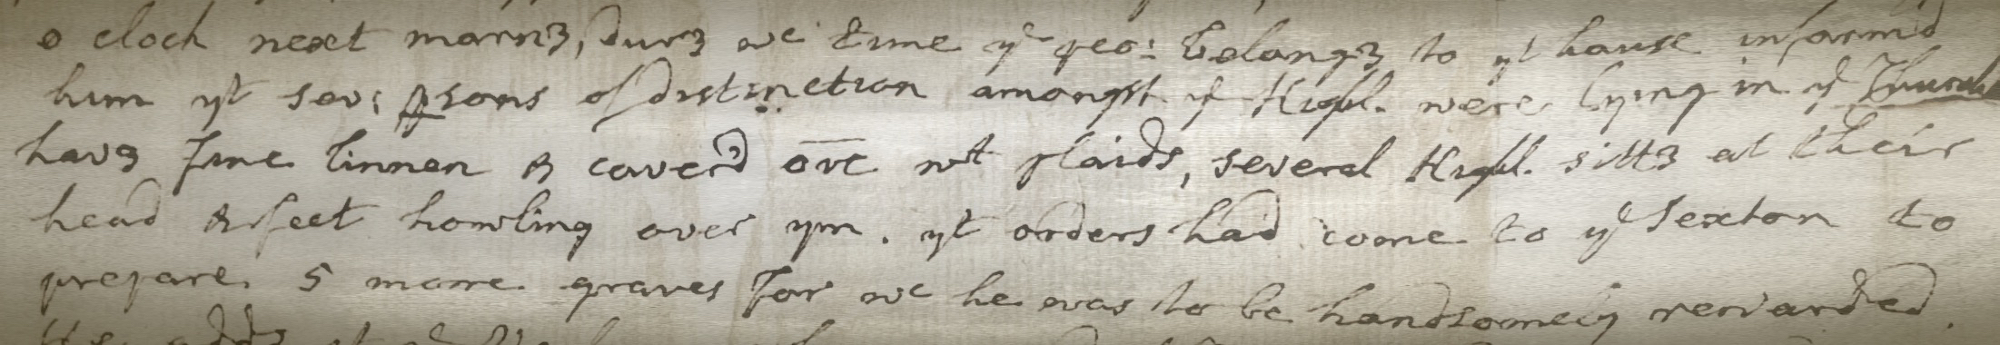 o clock next morn3, dur3 wc time ye peo: belong3 to yt house inform'd
him yt sev: Psons of distinction amongst ye Highl. were lying in ye Church
hav3 fine linnen & cover'd ov̅e̅ wt plaids, several Highl. sitt3 at their
head & feet howling over ym. yt orders had come to ye Sexton to
prepare 5 more graves for wc he was to be handsomely rewarded.